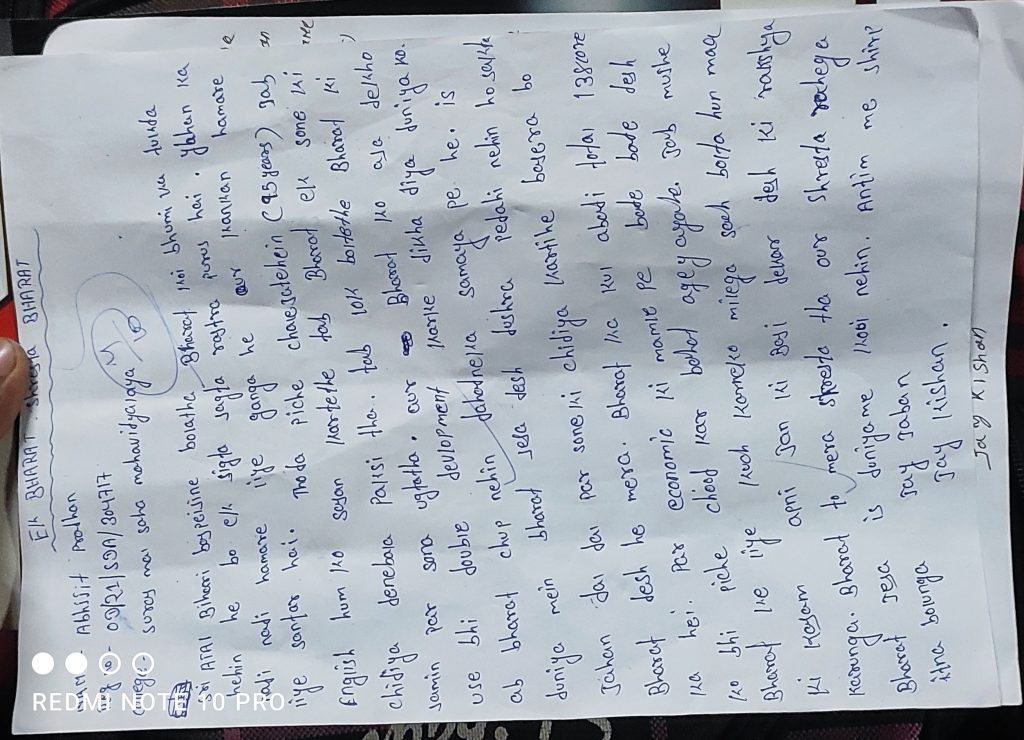 EK BHARAT shresta BHARAT
Name - Abhisit Prodhan
Regno - OD/21/SDA/304717
Colege - suraj mal saha mahavidyalaya
Sri ATAl Bihari bajpeisine bolatha Bharat koi bhumi ka tukda
nehin he bo ek sigta sagta rastra purus hai. yahan ka
nadi nadi hamare liye ganga he aur kankan hamare
liye sankar hai. Thoda piche chale jatehein (95 years) jab
English hum ko sosan kartethe tab Bharat ek sone ki
chidiya denebala Paksi tha. tab lok boltethe Bharat ki
jamin par sona ugtatha. aur Bharat ko aja dekho
use bhi double devlopment karke dikha diya duniya ko.
ab bharat chup nehin Jahodneka samaya pe he. is
duniya mein bharat jesa desh dushra pedahi nehin hosakta
Jahan dal dal par soneki chidiya kartihe basera bo
Bharat desh he mera. Bharat ka kul abadi total 138 core
ka hei. par economic ki mamle pe bade bade desh
ko bhi piche chood kar bahat agey ayahe. Jab mushe
Bharat ke liye kuch karneko milega sach bolta hun maa
ki kasam apni Jan ki Boji dekar desh ki rakshya
karunga. Bharat to mera shresta tha aur Shresta rahega
Bharat Jesa is duniyame koi nehin. Antim me shirp
itna bolunga Jay Jaban
Jay Kishan.
Jay Kishan
14/10
REDMI NOTE 10 PRO